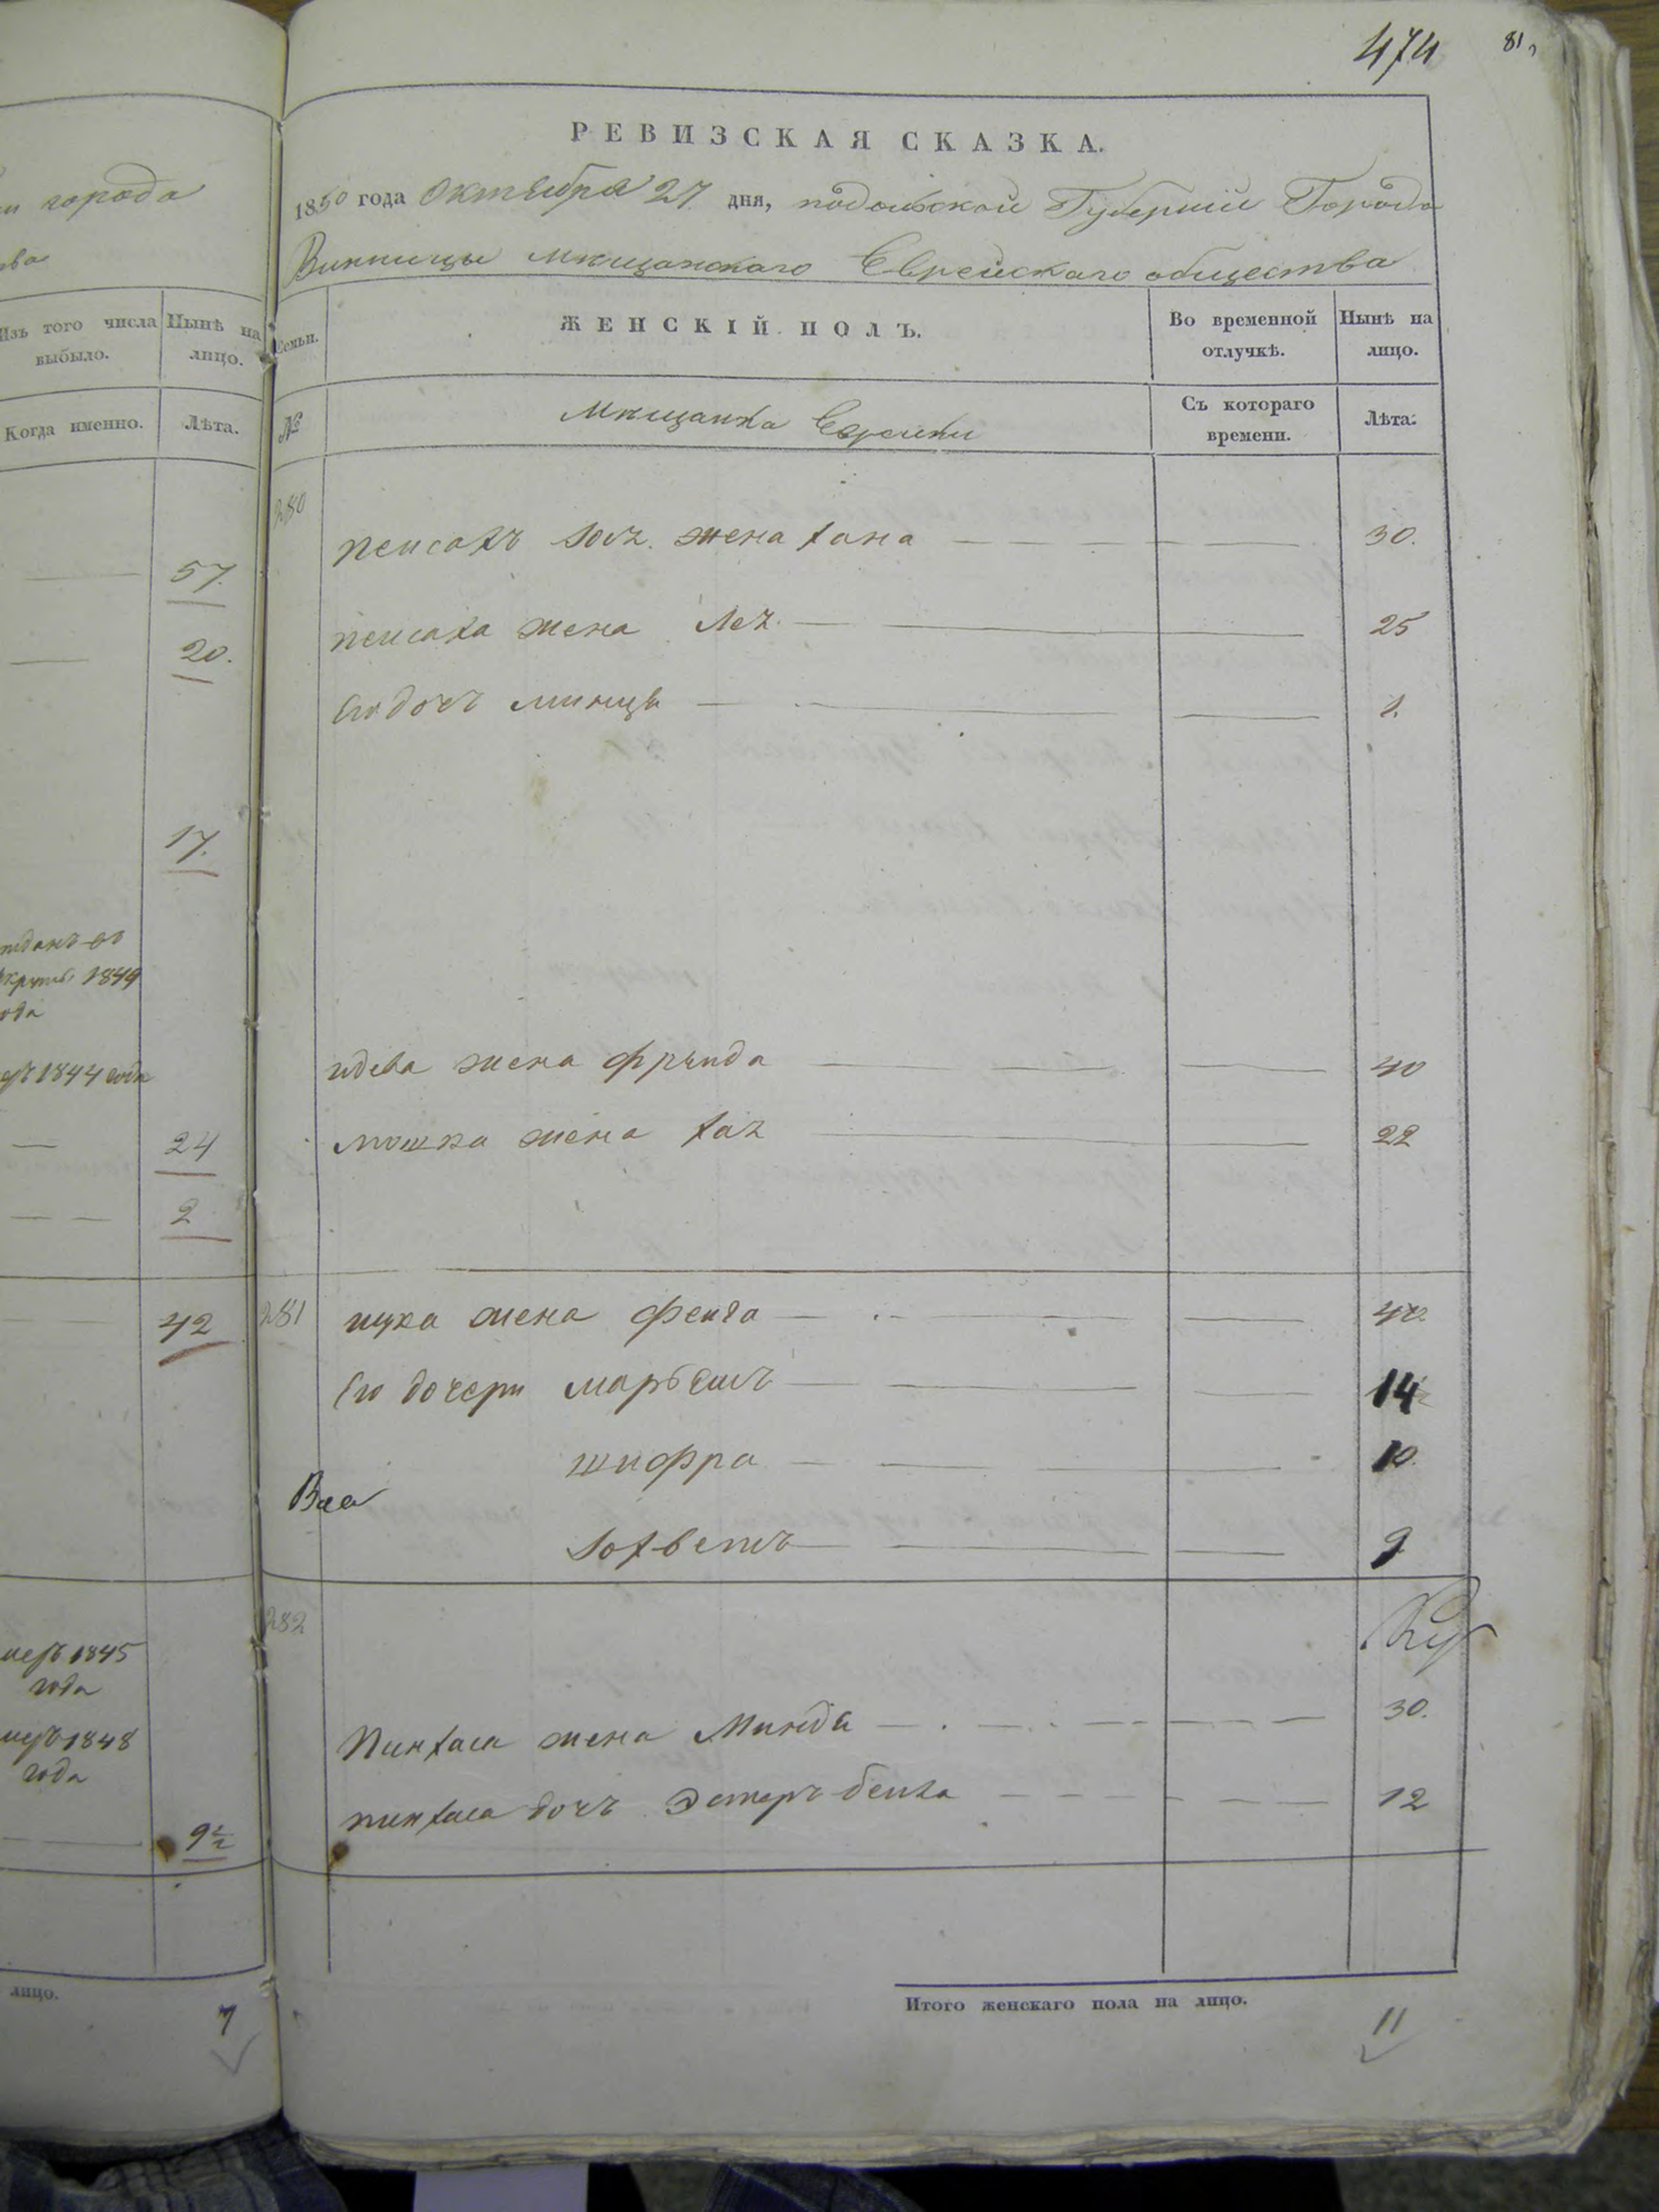 474 81
и города
ва
Изъ того числа выбыло. Нынѣ на лицо.
Когда именно. Лѣта.
57.
20.
17.
1849
ода
1844 года
24
2
42
1845
года
1848
года
9 1/2
лицо.
7
РЕВИЗСКАЯ СКАЗКА.
1850 года Октября 27 дня, подольской Губерніи Города
Винницы мѣщанскаго Еврейскаго общества
Семьи. ЖЕНСКІЙ ПОЛЪ. Во временной отлучкѣ. Нынѣ на лицо.
№ Мѣщанка Еврейки Съ котораго времени. Лѣта.
280
пейсахъ жена хана 30.
пейсаха жена Лея 25
Его дочь минця 1.
жена фрейда 40
мошка жена хая 22
281 ицка жена фейга 40.
Его дочери 14
шифра 10.
9
282
Пинхаса жена Минда 30.
пинхаса дочь Эстеръ бейла 12
Итого женскаго пола на лицо.
11